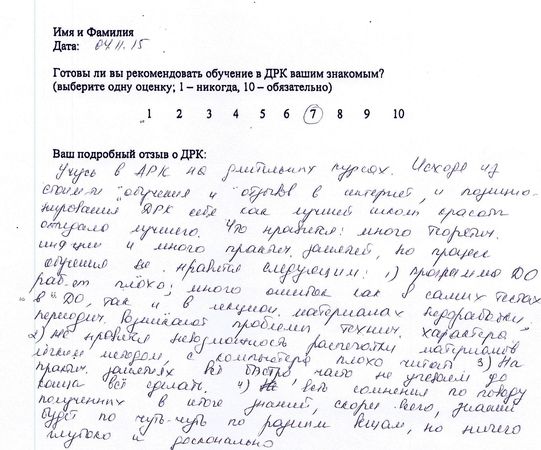 Имя и Фамилия
Дата: 04.11.15
Готовы ли вы рекомендовать обучение в ДРК вашим знакомым?
(выберите одну оценку; 1 – никогда, 10 – обязательно)
1 2 3 4 5 6 7 8 9 10
Ваш подробный отзыв о ДРК:
Учусь в ДРК на длительных курсах. Исходя из
стоимости обучения и отзывов в интернет, и позицио-
нирования ДРК себя как лучшей школы красоты
ожидала лучшего. Что нравится: много теоретич.
и много практич. занятий, но процесс
обучения не нравится следующим: 1) программа ДО
работ. плохо, много ошибок как в самих тестах
в ДО, так и в лекцион. материалах "недоработки",
периодич. возникают проблемы технич. характера
2) Не нравится невозможность распечатки материалов
методом, с компьютера плохо читать 3) На
практ. занятиях всё быстро, часто не успеваем до
конца всё сделать. 4) Есть сомнения по поводу
полученных в итоге знаний, скорее всего, знания
будут по чуть-чуть по разным вещам, но ничего
глубоко и досконально